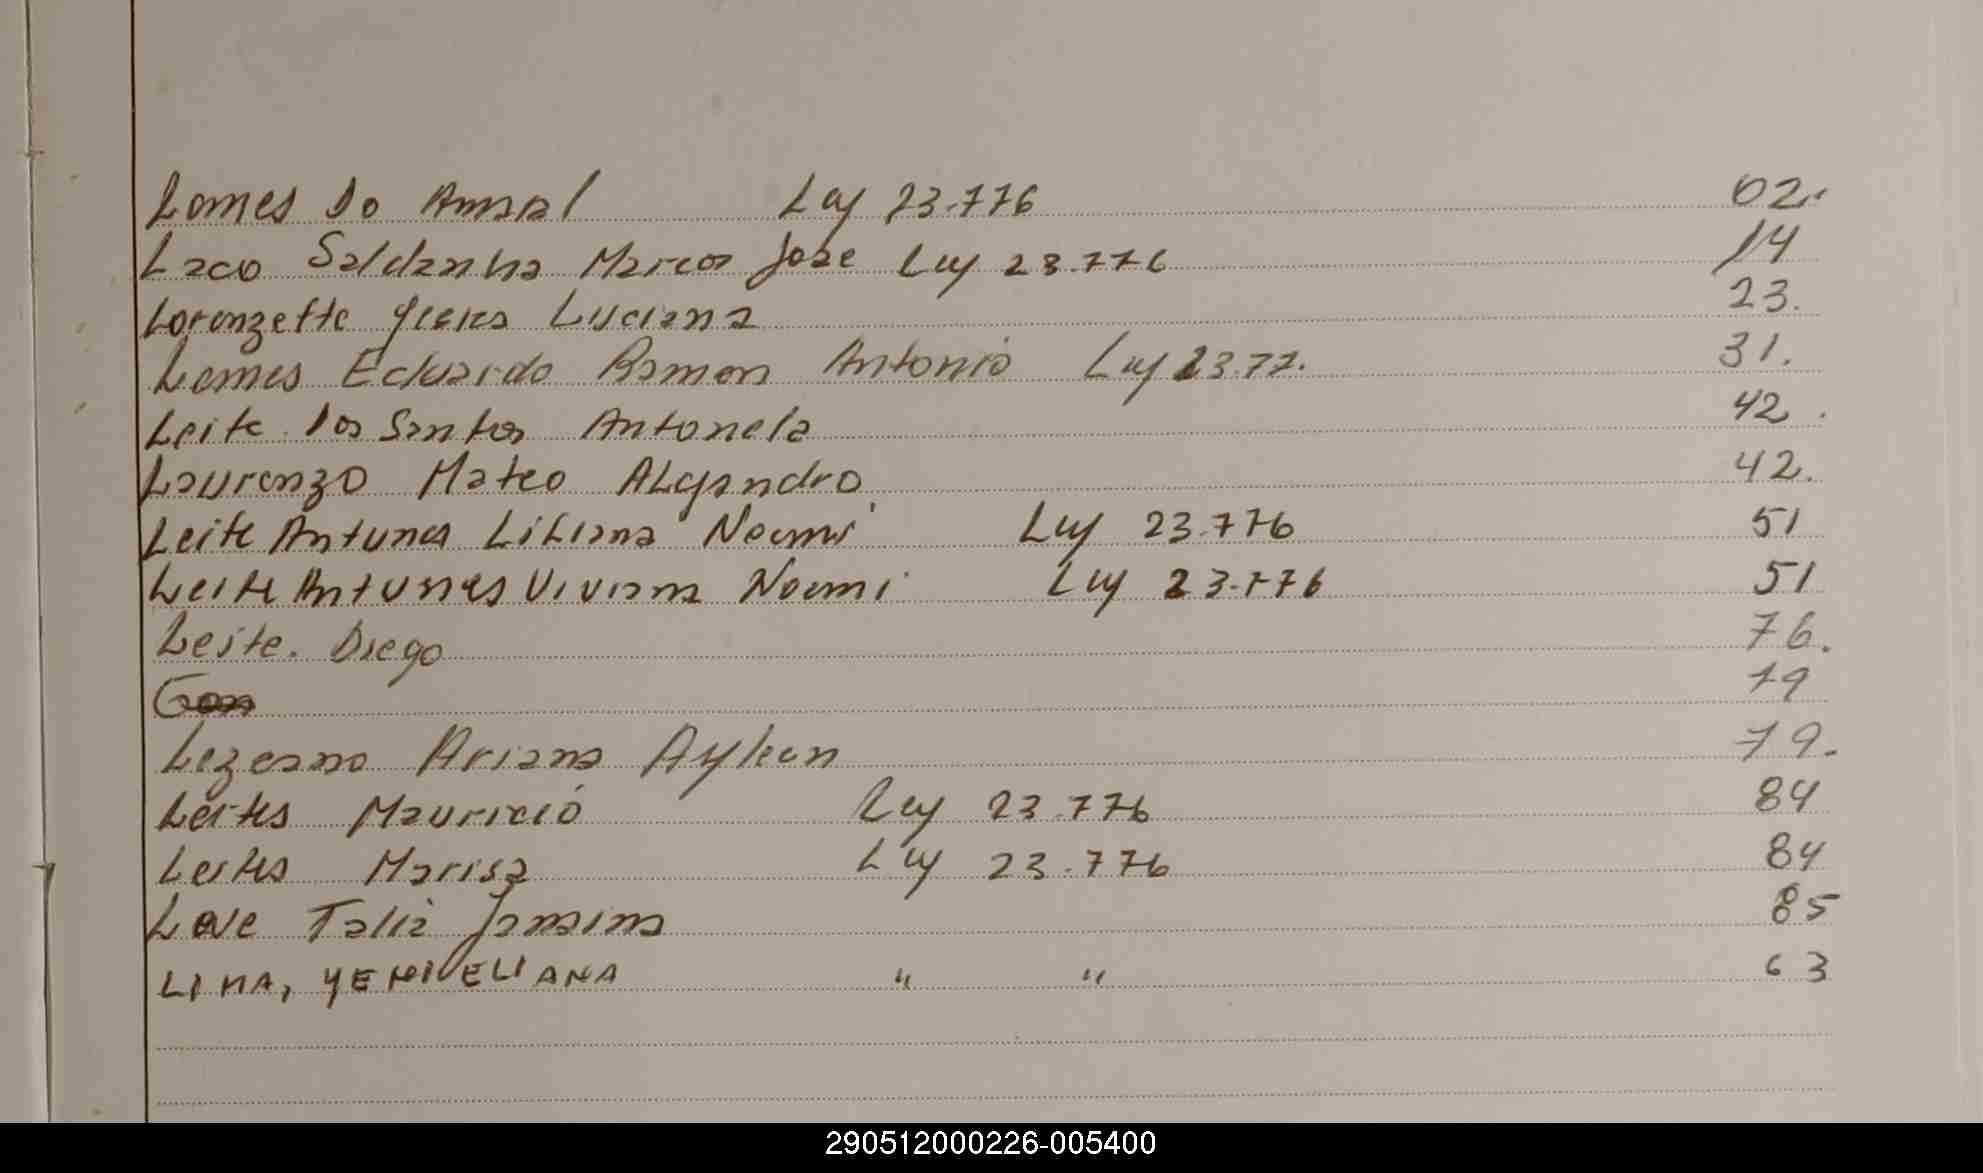 Lomes Do Amaral Ley 23.776 02.
Laco Saldanha Marcos Jose Ley 23.776 14
Lorenzette Luciana 23.
Lemes Eduardo Ramon Antonio Ley 23.77. 31.
Leite Dos Santos Antonela 42.
Laurenzo Mateo Alejandro 42.
Leite Antunes Liliana Noemi Ley 23.776 51
Leite Antunes Viviana Noemi Ley 23.776 51
Leite. Diego 76.
79
Lezcano Ariana Aylen 79.
Leites Mauricio Ley 23.776 84
Leites Marisa Ley 23.776 84
Leve Talia Jamaima 85
LIMA, YENI ELIANA " " 63
290512000226-005400